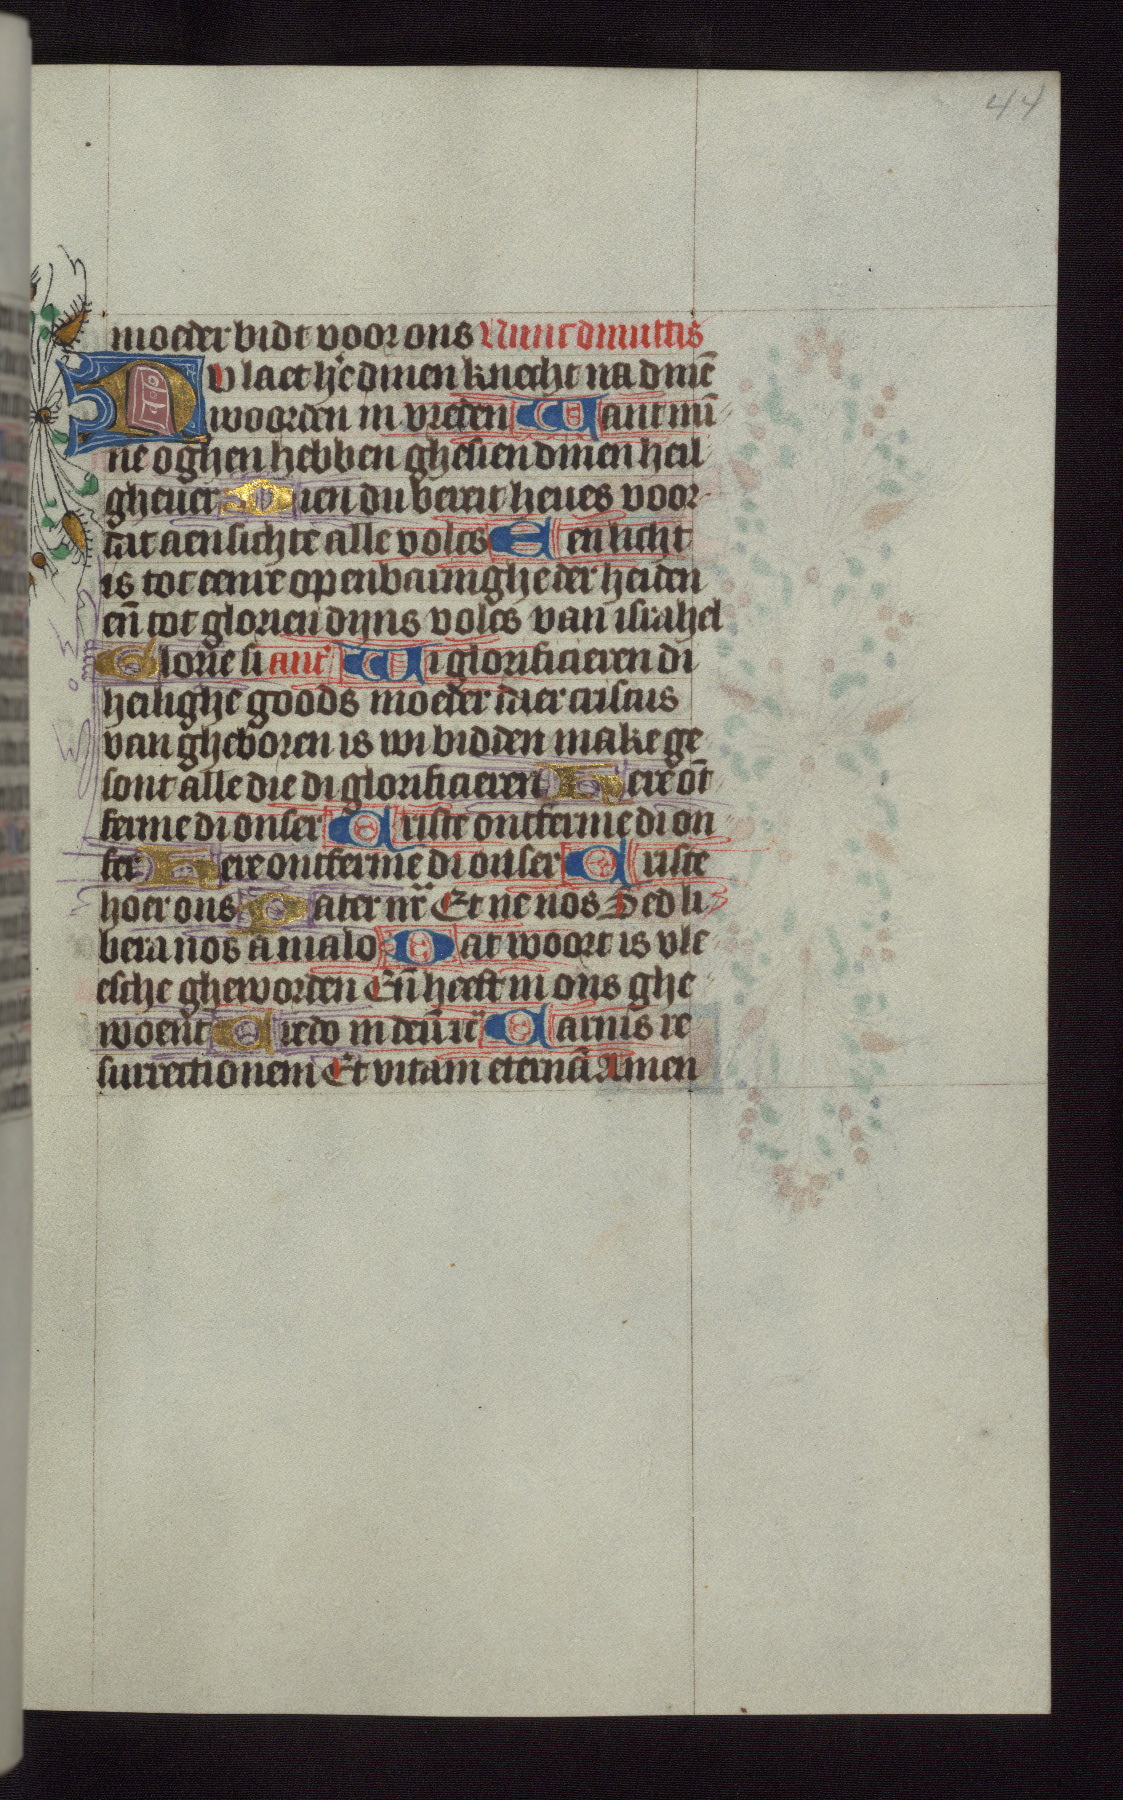 44
moeder bidt voor ons Nunc dimittis
Nu laet he dinen knecht na dinē
woorden in vreden Want mi
ne oghen hebben ghesien dinen heil
gheuer Dien du bereit heues voor
dat aensichte alle volcs Een licht
is tot eenre openbaringhe der heiden
eñ tot glorien dijns volcs van israhel
Glorie si ant Wi glorificieren di
heilighe goods moeder daer cristus
van gheboren is wi bidden make ge
sont alle die di glorificieren Here ōt
ferme di onser Criste ontferme di on
ser Here ontferme di onser Criste
hoer ons Pater nr̄ Et ne nos Sed li
bera nos a malo Dat woort is vle
esche gheworden Eñ heeft in ons ghe
woent Credo in deū Carnis re
surrectionem Et vitam eternā Amen